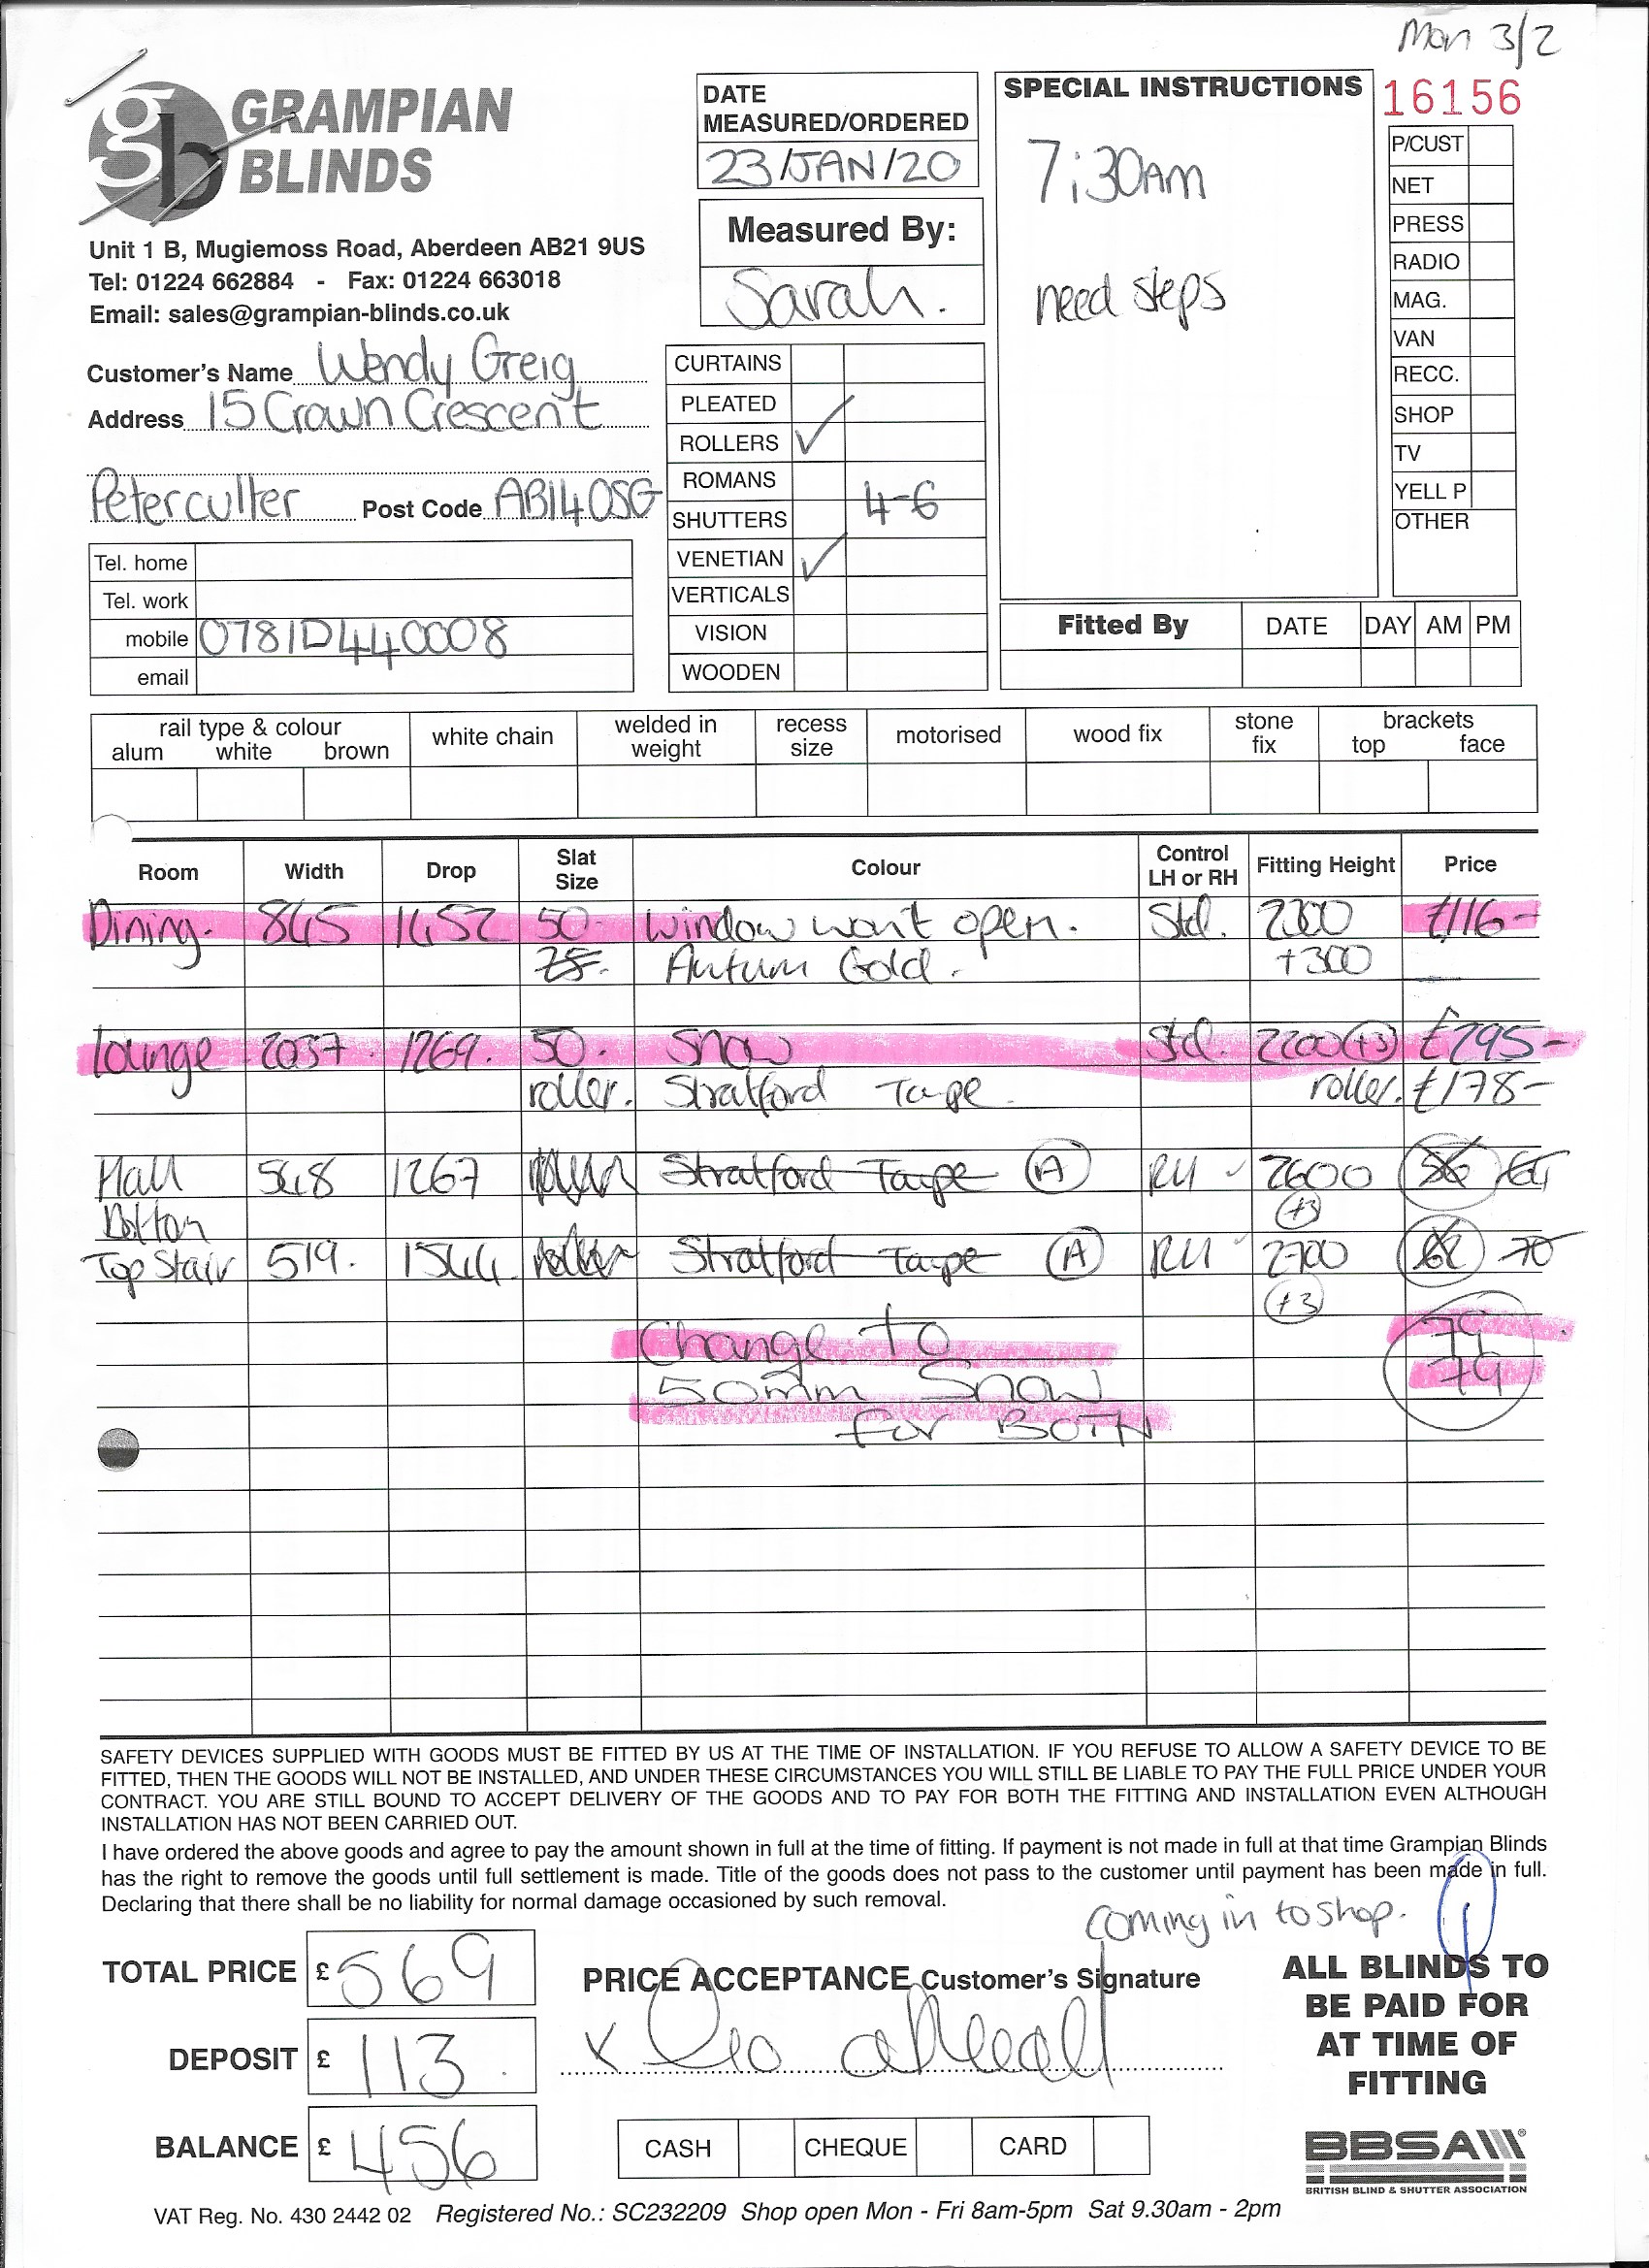 Mon 3/2
GRAMPIAN
BLINDS
gb
Unit 1 B, Mugiemoss Road, Aberdeen AB21 9US
Tel: 01224 662884 - Fax: 01224 663018
Email: sales@grampian-blinds.co.uk
Customer's Name Wendy Greig
Address 15 Crown Crescent
Peterculter Post Code AB14 0SG
Tel. home
Tel. work
mobile 07810440008
email
DATE
MEASURED/ORDERED
23/JAN/20
Measured By:
Sarah.
CURTAINS
PLEATED
ROLLERS ✓
ROMANS
SHUTTERS 4-6
VENETIAN ✓
VERTICALS
VISION
WOODEN
SPECIAL INSTRUCTIONS
7:30am
need steps
16156
P/CUST
NET
PRESS
RADIO
MAG.
VAN
RECC.
SHOP
TV
YELL P
OTHER
Fitted By DATE DAY AM PM
rail type & colour white chain welded in weight recess size motorised wood fix stone fix brackets
alum white brown top face
Room Width Drop Slat Size Colour Control LH or RH Fitting Height Price
Dining. 845 1452 50 Window won't open. Std. 2300 £116-
25. Autum Gold. +300
Lounge 2037. 1269. 50. Snow Std. 2200 (+3) £295-
roller. Stratford Taupe. roller. £178-
Hall 548 1267 Stratford Taupe (A) RH 2600 56
Bottom (+3)
Top Stair 519. 1544. roller Stratford Taupe (A) RH 2700 62 70
(+3)
Change to 79
50mm Snow 79
for BOTH
SAFETY DEVICES SUPPLIED WITH GOODS MUST BE FITTED BY US AT THE TIME OF INSTALLATION. IF YOU REFUSE TO ALLOW A SAFETY DEVICE TO BE
FITTED, THEN THE GOODS WILL NOT BE INSTALLED, AND UNDER THESE CIRCUMSTANCES YOU WILL STILL BE LIABLE TO PAY THE FULL PRICE UNDER YOUR
CONTRACT. YOU ARE STILL BOUND TO ACCEPT DELIVERY OF THE GOODS AND TO PAY FOR BOTH THE FITTING AND INSTALLATION EVEN ALTHOUGH
INSTALLATION HAS NOT BEEN CARRIED OUT.
I have ordered the above goods and agree to pay the amount shown in full at the time of fitting. If payment is not made in full at that time Grampian Blinds
has the right to remove the goods until full settlement is made. Title of the goods does not pass to the customer until payment has been made in full.
Declaring that there shall be no liability for normal damage occasioned by such removal.
coming in to shop.
TOTAL PRICE £ 569
DEPOSIT £ 113.
BALANCE £ 456
PRICE ACCEPTANCE Customer's Signature
x
CASH CHEQUE CARD
ALL BLINDS TO
BE PAID FOR
AT TIME OF
FITTING
BBSA
BRITISH BLIND & SHUTTER ASSOCIATION
VAT Reg. No. 430 2442 02 Registered No.: SC232209 Shop open Mon - Fri 8am-5pm Sat 9.30am - 2pm